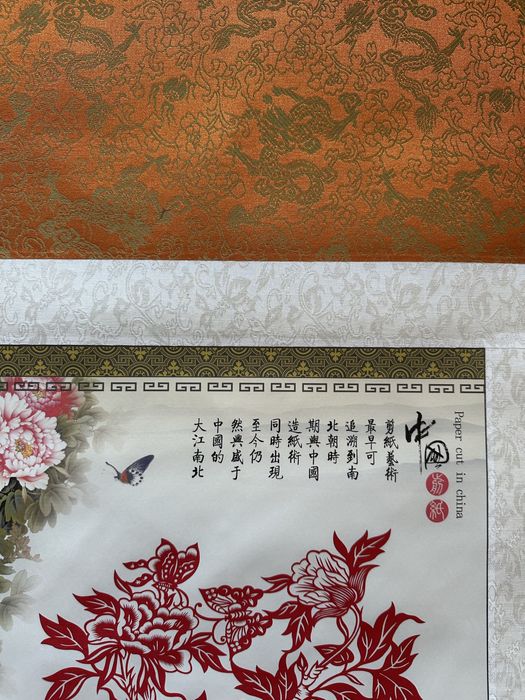 Paper cut in china
中國
剪紙
剪紙藝術
最早可
追溯到南
北朝時
期與中國
造紙術
同時出現
至今仍
然興盛于
中國的
大江南北